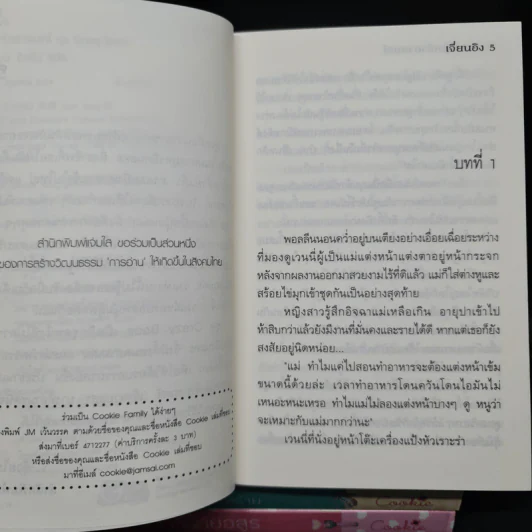 สำนักพิมพ์แจ่มใส ขอร่วมเป็นส่วนหนึ่ง
ของการสร้างวัฒนธรรม 'การอ่าน' ให้เกิดขึ้นในสังคมไทย
ร่วมเป็น Cookie Family ได้ง่ายๆ
พิมพ์ JM เว้นวรรค ตามด้วยชื่อของคุณและชื่อหนังสือ Cookie เล่มที่ชอบ
ส่งมาที่เบอร์ 4712277 (ค่าบริการครั้งละ 3 บาท)
หรือส่งชื่อของคุณและชื่อหนังสือ Cookie เล่มที่ชอบ
มาที่อีเมล์ cookie@jamsai.com
เจี่ยนอิง 5
บทที่ 1
พอลลีนนอนคว่ำอยู่บนเตียงอย่างเอื่อยเฉื่อยระหว่าง
ที่มองดูเวนนี่ผู้เป็นแม่แต่งหน้าแต่งตาอยู่หน้ากระจก
หลังจากผลงานออกมาสวยงามไร้ที่ติแล้ว แม่ก็ใส่ต่างหูและ
สร้อยไข่มุกเข้าชุดกันเป็นอย่างสุดท้าย
หญิงสาวรู้สึกอิจฉาแม่เหลือเกิน อายุปาเข้าไป
ห้าสิบกว่าแล้วยังมีงานที่มั่นคงและรายได้ดี หากแต่เธอก็ยัง
สงสัยอยู่นิดหน่อย...
"แม่ ทำไมแค่ไปสอนทำอาหารจะต้องแต่งหน้าเข้ม
ขนาดนี้ด้วยล่ะ เวลาทำอาหารโดนควันโดนไอมันไม่
เหนอะหนะเหรอ ทำไมแม่ไม่ลองแต่งหน้าบางๆ ดู หนูว่า
จะเหมาะกับแม่มากกว่านะ"
เวนนี่ที่นั่งอยู่หน้าโต๊ะเครื่องแป้งหัวเราะร่า
Cookie